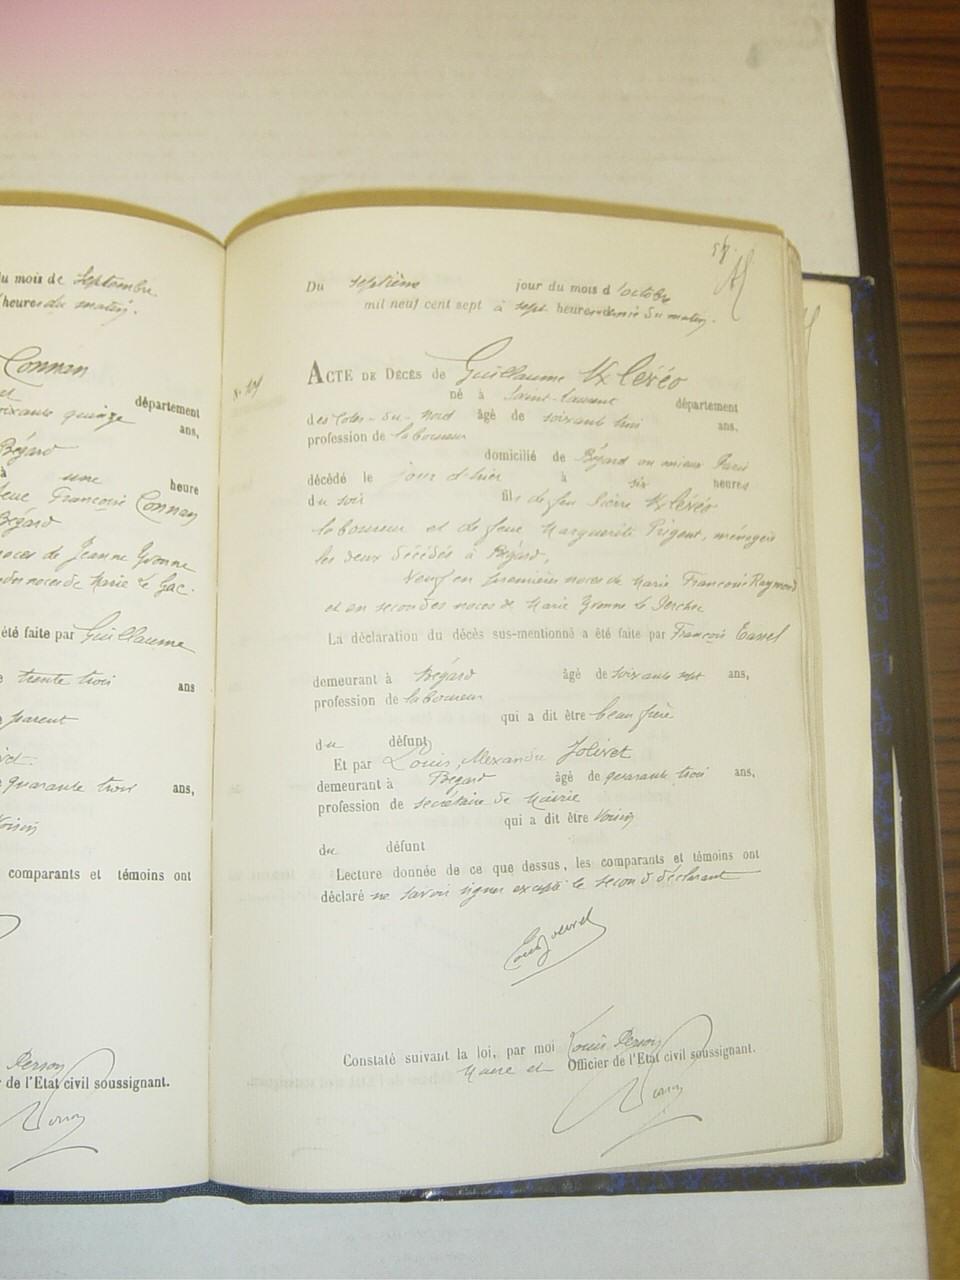 u mois de Septembre
heures du matin.
Connan
département
soixante quinze ans,
Bégard
à une heure
feue Françoise Connan
Bégard
noces de Jeanne Yvonne
secondes noces de Marie Le Gac.
été faite par Guillaume
trente trois ans
parent
quarante trois ans,
Voisin
comparants et témoins ont
Person
r de l'Etat civil soussignant.
Person
57.
Du septième jour du mois d'octobre
mil neuf cent sept à sept heures et demie du matin.
ACTE DE DÉCÈS de Guillaume
né à Saint-Laurent département
des Côtes-du-Nord âgé de soixante trois ans,
profession de laboureur
domicilié de Bégard
décédé le jour d'hier à six heures
du soir fils de feu Pierre
laboureur et de feue Marguerite Prigent, ménagère
les deux décédés à Bégard,
Veuf en premières noces de Marie Françoise Raymond
et en secondes noces de Marie Yvonne le
La déclaration du décès sus-mentionné a été faite par François
demeurant à Bégard âgé de soixante sept ans,
profession de laboureur
qui a dit être beau frère
du défunt
Et par Louis, Alexandre Jolivet
demeurant à Bégard âgé de quarante trois ans,
profession de secrétaire de Mairie
qui a dit être Voisin
du défunt
Lecture donnée de ce que dessus, les comparants et témoins ont
déclaré ne savoir signer excepté le second déclarant
Constaté suivant la loi, par moi Louis Person
Maire et Officier de l'Etat civil soussignant.
Person